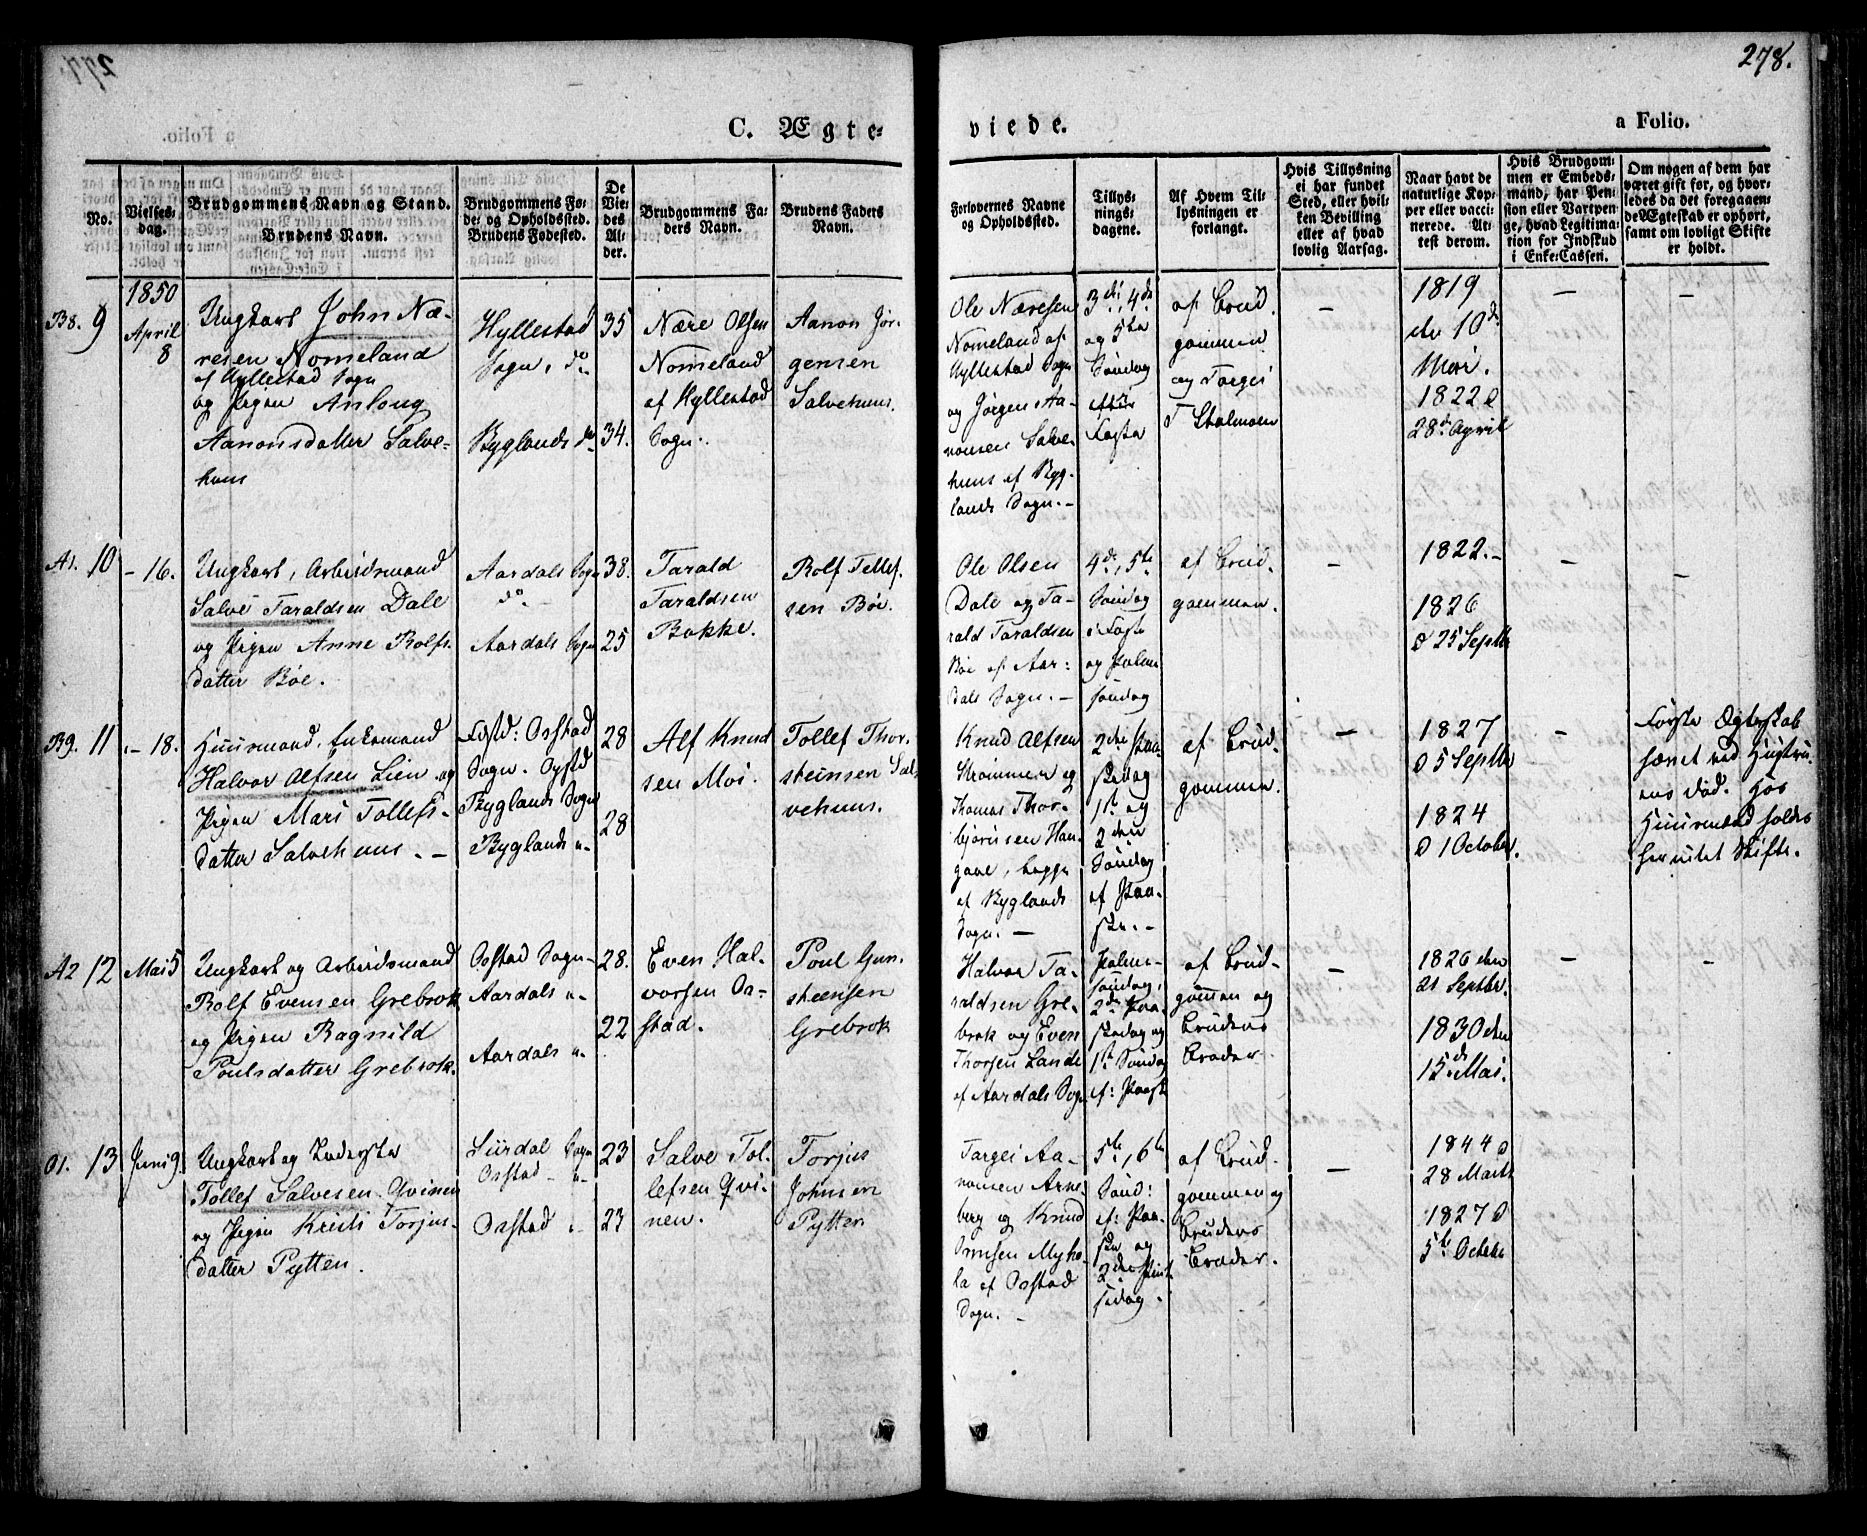 278.
C. Ægte-
viede.
a Folio.
No.
Vielses-
dag.
Brudgommens Navn og Stand.
Brudens Navn.
Brudgommens Fø-
de- og Opholdssted.
Brudens Fødested.
De
Vie-
des
Al-
der.
Brudgommens Fa-
ders Navn.
Brudens Faders
Navn.
Forlovernes Navne
og Opholdssted.
Tillys-
nings-
dagene.
Af Hvem Til-
lysningen er
forlangt.
Hvis Tillysning
ei har fundet
Sted, eller hvil-
ken Bevilling
eller af hvad
lovlig Aarsag.
Naar havt de
naturlige Kop-
per eller vacci-
nerede. At-
test derom.
Hvis Brudgom-
men er Embeds-
mand, har Pen-
sion eller Vartpen-
ge, hvad Legitima-
tion for Indskud
i Enke-Cassen.
Om nogen af dem har
været gift før, og hvor-
ledes da det foregaaen-
de Ægteskab er ophørt,
samt om lovligt Skifte
er holdt.
B8. 9
1850
April
8
Ungkarl John Næ-
resen Nomeland
af Hyllestad Sogn
og Pigen Anlaug
Aanonsdatter Salve-
huus
Hyllestad
Sogn, do
Byglands do
35
34.
Nære Olsen
Nomeland
af Hyllestad
Sogn.
Aanon Jør-
gensen
Salvehuus.
Ole Næresen
Nomeland af
Hyllestad Sogn
og Jørgen Aa-
nonsen Salve-
huus af Byg-
lands Sogn. -
3die, 4de
og 5te
Søndag
efter
Faste
af Brud-
gommen
og Targei
T Stolmoen
-
1819
den 10de
Mai.
1822 d
28de April
-
-
A1. 10
- 16.
Ungkarl, Arbeidsmand
Salve Taraldsen Dale
og Pigen Anne Rolfs-
datter Bøe.
Aardals Sogn
do -
Aardals Sogn
38.
25
Tarald
Taraldsen
Bakke.
Rolf Tellef-
sen Bøe.
Ole Olsen
Dale og Ta-
rald Taraldsen
Bøe af Aar-
dals Sogn. -
4de, 5te
Søndag
i Faste
og Palme
søndag
af Brud-
gommen.
1822. -
1826
d 25 Septbr
-
-
B9. 11
- 18.
Huusmand, Enkemand
Halvor Alfsen Lien og
Pigen Mari Tollefs-
datter Salvehuus. -
Fødst: Osstad
Sogn. Opstd
Byglands Sogn
Byglands "
28
28
Alf Knud
sen Moi.
Tollef Thor-
steinsen Sal-
vehuus.
Knud Alfsen
Strømmen og
Thomas Thor-
bjørnsen Han-
gaae, begge
af Byglands
Sogn. -
2den Paa-
skedag
1ste og
2den
Søndag
af Paa-
ske. -
af Brud-
gommen.
-
1827
d 5 Septbr
1824
d 1 October.
-
Første Ægteskab
hævet ved Hustru-
ens Død. Hos
Huusmand holdes
herudet Skifte.
A2 12
Mai 5
Ungkarl og Arbeidsmand
Rolf Evensen Grebrok
og Pigen Ragnild
Poulsdatter Grebrok.
Osstad Sogn
Aardals "
Aardals "
28.
22
Even Hal-
vorsen Os-
stad.
Poul Gun-
steensen
Grebrok
Halvor Ta-
raldsen Gre-
brok og Even
Thorsen Lande
af Aardals Sogn
Palme-
søndag,
2den Paa-
skedag og
1ste Søndag
ef: Paaske
af Brud-
gommen og
Brudens
Broder.
-
1826 den
21 Septbr.
1830 den
15de Mai.
-
-
O1. 13
Juni 9.
Ungkarl og Inderste
Tollef Salvesen Qvinen
og Pigen Kristi Torjus-
datter Pytten.
Siirdal Sogn
Osstad "
Osstad "
23
23
Salve Tol-
lefsen Qvi-
nen.
Torjus
Johnsen
Pytten
Targei Aa-
nonsen Arne-
berg og Knud
Ormsen Myho-
la af Osstad
Sogn. -
5te, 6te
Sønd:
ef: Paa-
ske og
2den Pint-
sedag.
af Brud-
gommen og
Brudens
Broder.
-
1844 d
28 Marts
1827 d
5te Octobr